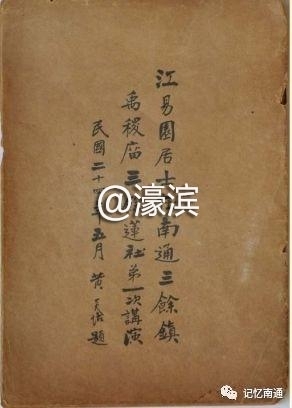 江易園居士南通三餘鎮
禹稷庙三蓮社第一次講演
民國二十四年五月 黄題
@濠滨
记忆南通